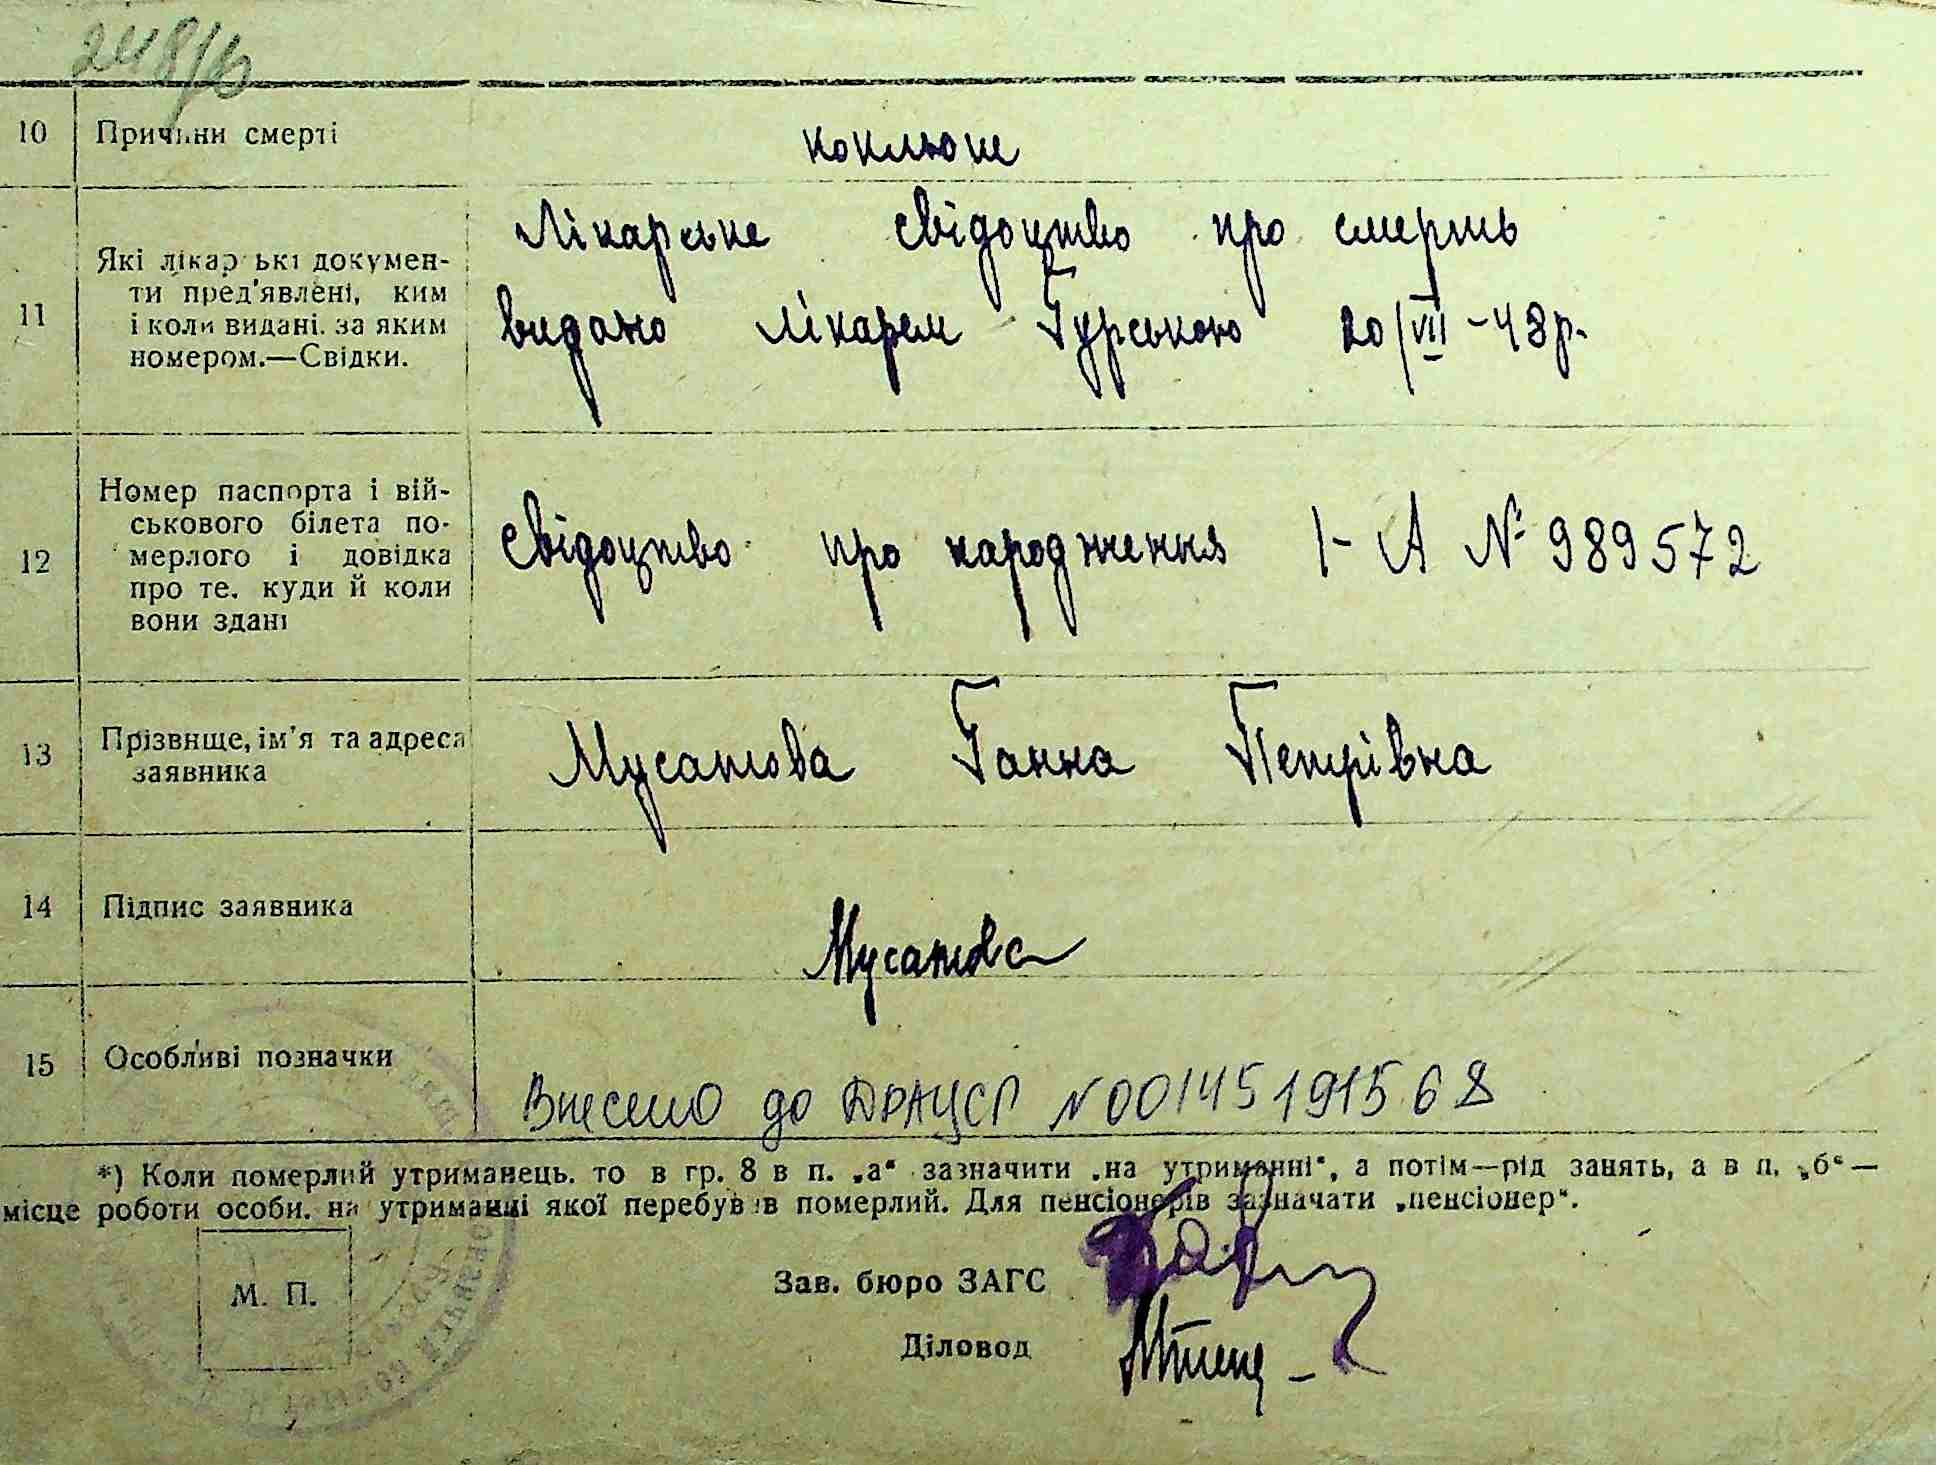 248/б
10 Причини смерті коклюш
11 Які лікарські докумен-
ти пред'явлені, ким
і коли видані. за яким
номером.—Свідки.
Лікарське свідоцтво про смерть
видано лікарем Гурською 20/VII-43р.
12 Номер паспорта і вій-
ськового білета по-
мерлого і довідка
про те. куди й коли
вони здані
Свідоцтво про народження I-А № 989572
13 Прізвище, ім'я та адреса
заявника
Мусатова Ганна Петрівна
14 Підпис заявника Мусатова
15 Особливі позначки
Внесено до ДРАЦСГ N00145191568
*) Коли померлий утриманець. то в гр. 8 в п. „а“ зазначити „на утриманні“, а потім—рід занять, а в п. „б“—
місце роботи особи. на утриманні якої перебував померлий. Для пенсіонерів зазначати „пенсіонер“.
М. П.
Зав. бюро ЗАГС
Діловод